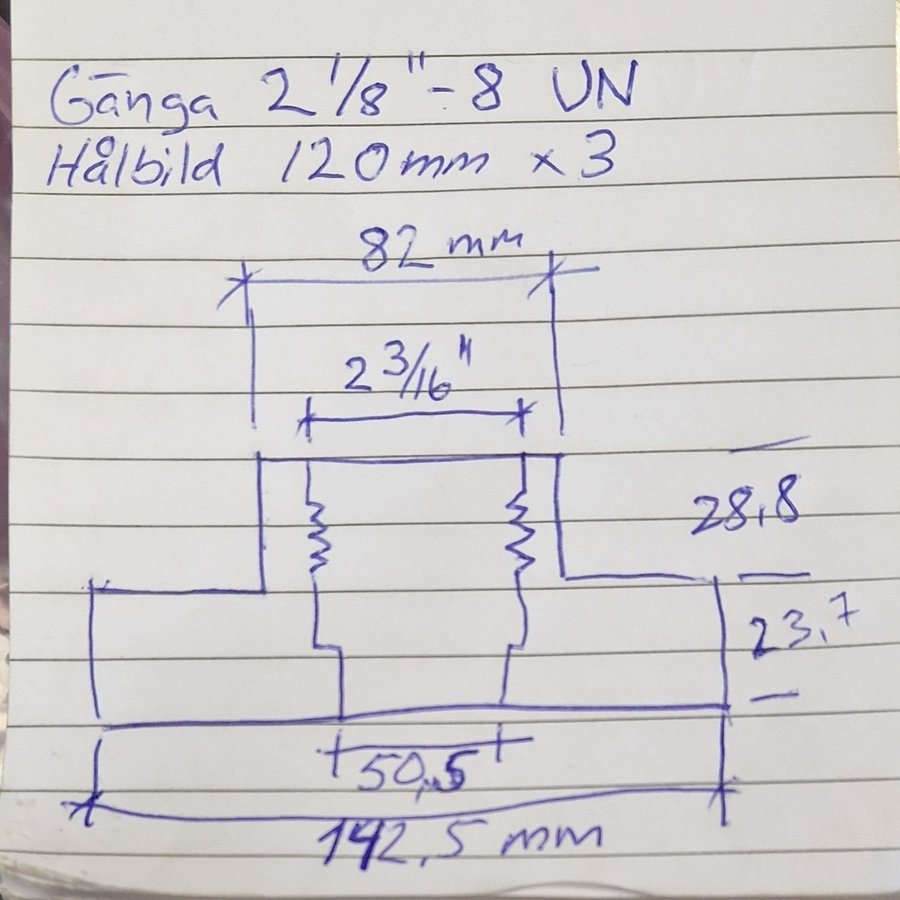 Gänga 2 1/8"-8 UN
Hålbild 120mm x 3
82 mm
2 3/16"
28,8
23,7
50,5
142,5 mm